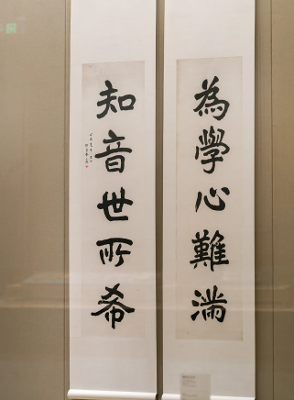 為學心難滿
知音世所希